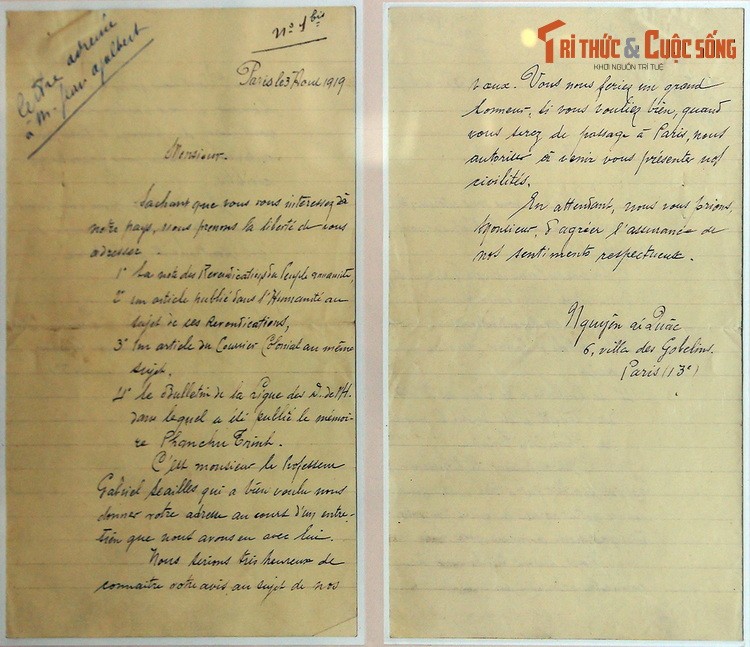 lettre adressée
à M. Jean Ajalbert
Nº 1 bis
Paris le 3 Aout 1919
Monsieur.
Sachant que vous vous interessez à
notre pays, nous prenons la liberté de vous
adresser.
1° La note des Revendications du Peuple annamite,
2° un article publié dans l'Humanité au
sujet de ses Revendications,
3° Un article du Courrier Colonial au même
sujet.
4° le Bulletin de la Ligue des D. de l'H.
dans lequel a été publié le mémoi-
re Phanchu Trinh.
C'est monsieur le Professeur
Gabriel Seailles, qui a bien voulu nous
donner votre adresse au court d'un entre-
tien que nous avons eu avec lui.
Nous serions très heureux de
connaître votre avis au sujet de nos
TRI THỨC & CUỘC SỐNG
KHƠI NGUỒN TRÍ TUỆ
vœux. Vous nous feriez un grand
honneur, si vous vouliez bien, quand
vous serez de passage à Paris, nous
autoriser à venir vous présenter nos
civilités.
En attendant, nous vous prions,
Monsieur, d'agréer l'assurance de
nos sentiments respectueux.
Nguyễn ái Quấc
6, villa des Gobelins.
Paris (13e)